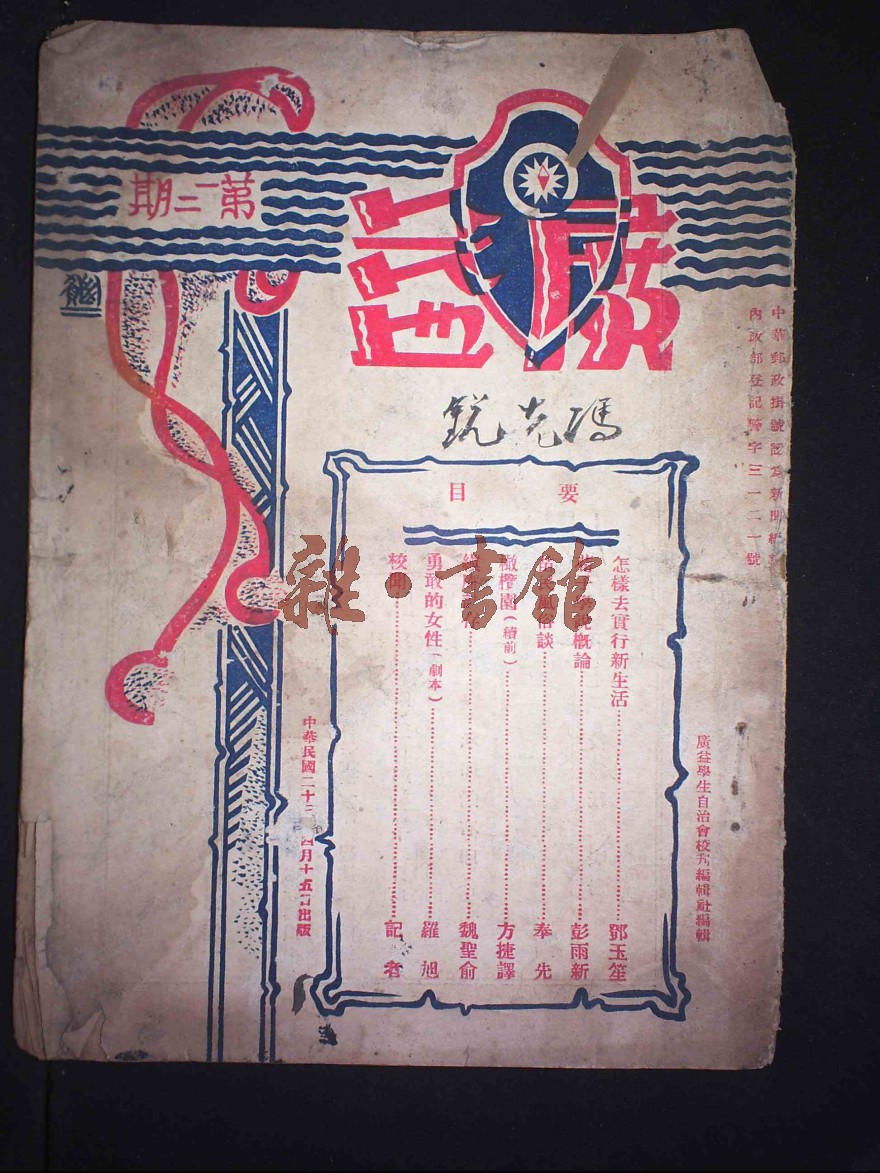 廣益
第三期
中華郵政掛號認為新聞紙
內政部登記警字三一二一號
馮克銳
要目
怎樣去實行新生活 鄧玉笙
概論 彭雨新
談 奉先
橄欖園(續前) 方捷譯
魏聖俞
勇敢的女性(劇本) 羅旭
校聞 記者
廣益學生自治會校刊編輯社編輯
中華民國二十三 四月十五日出版
雜·書館